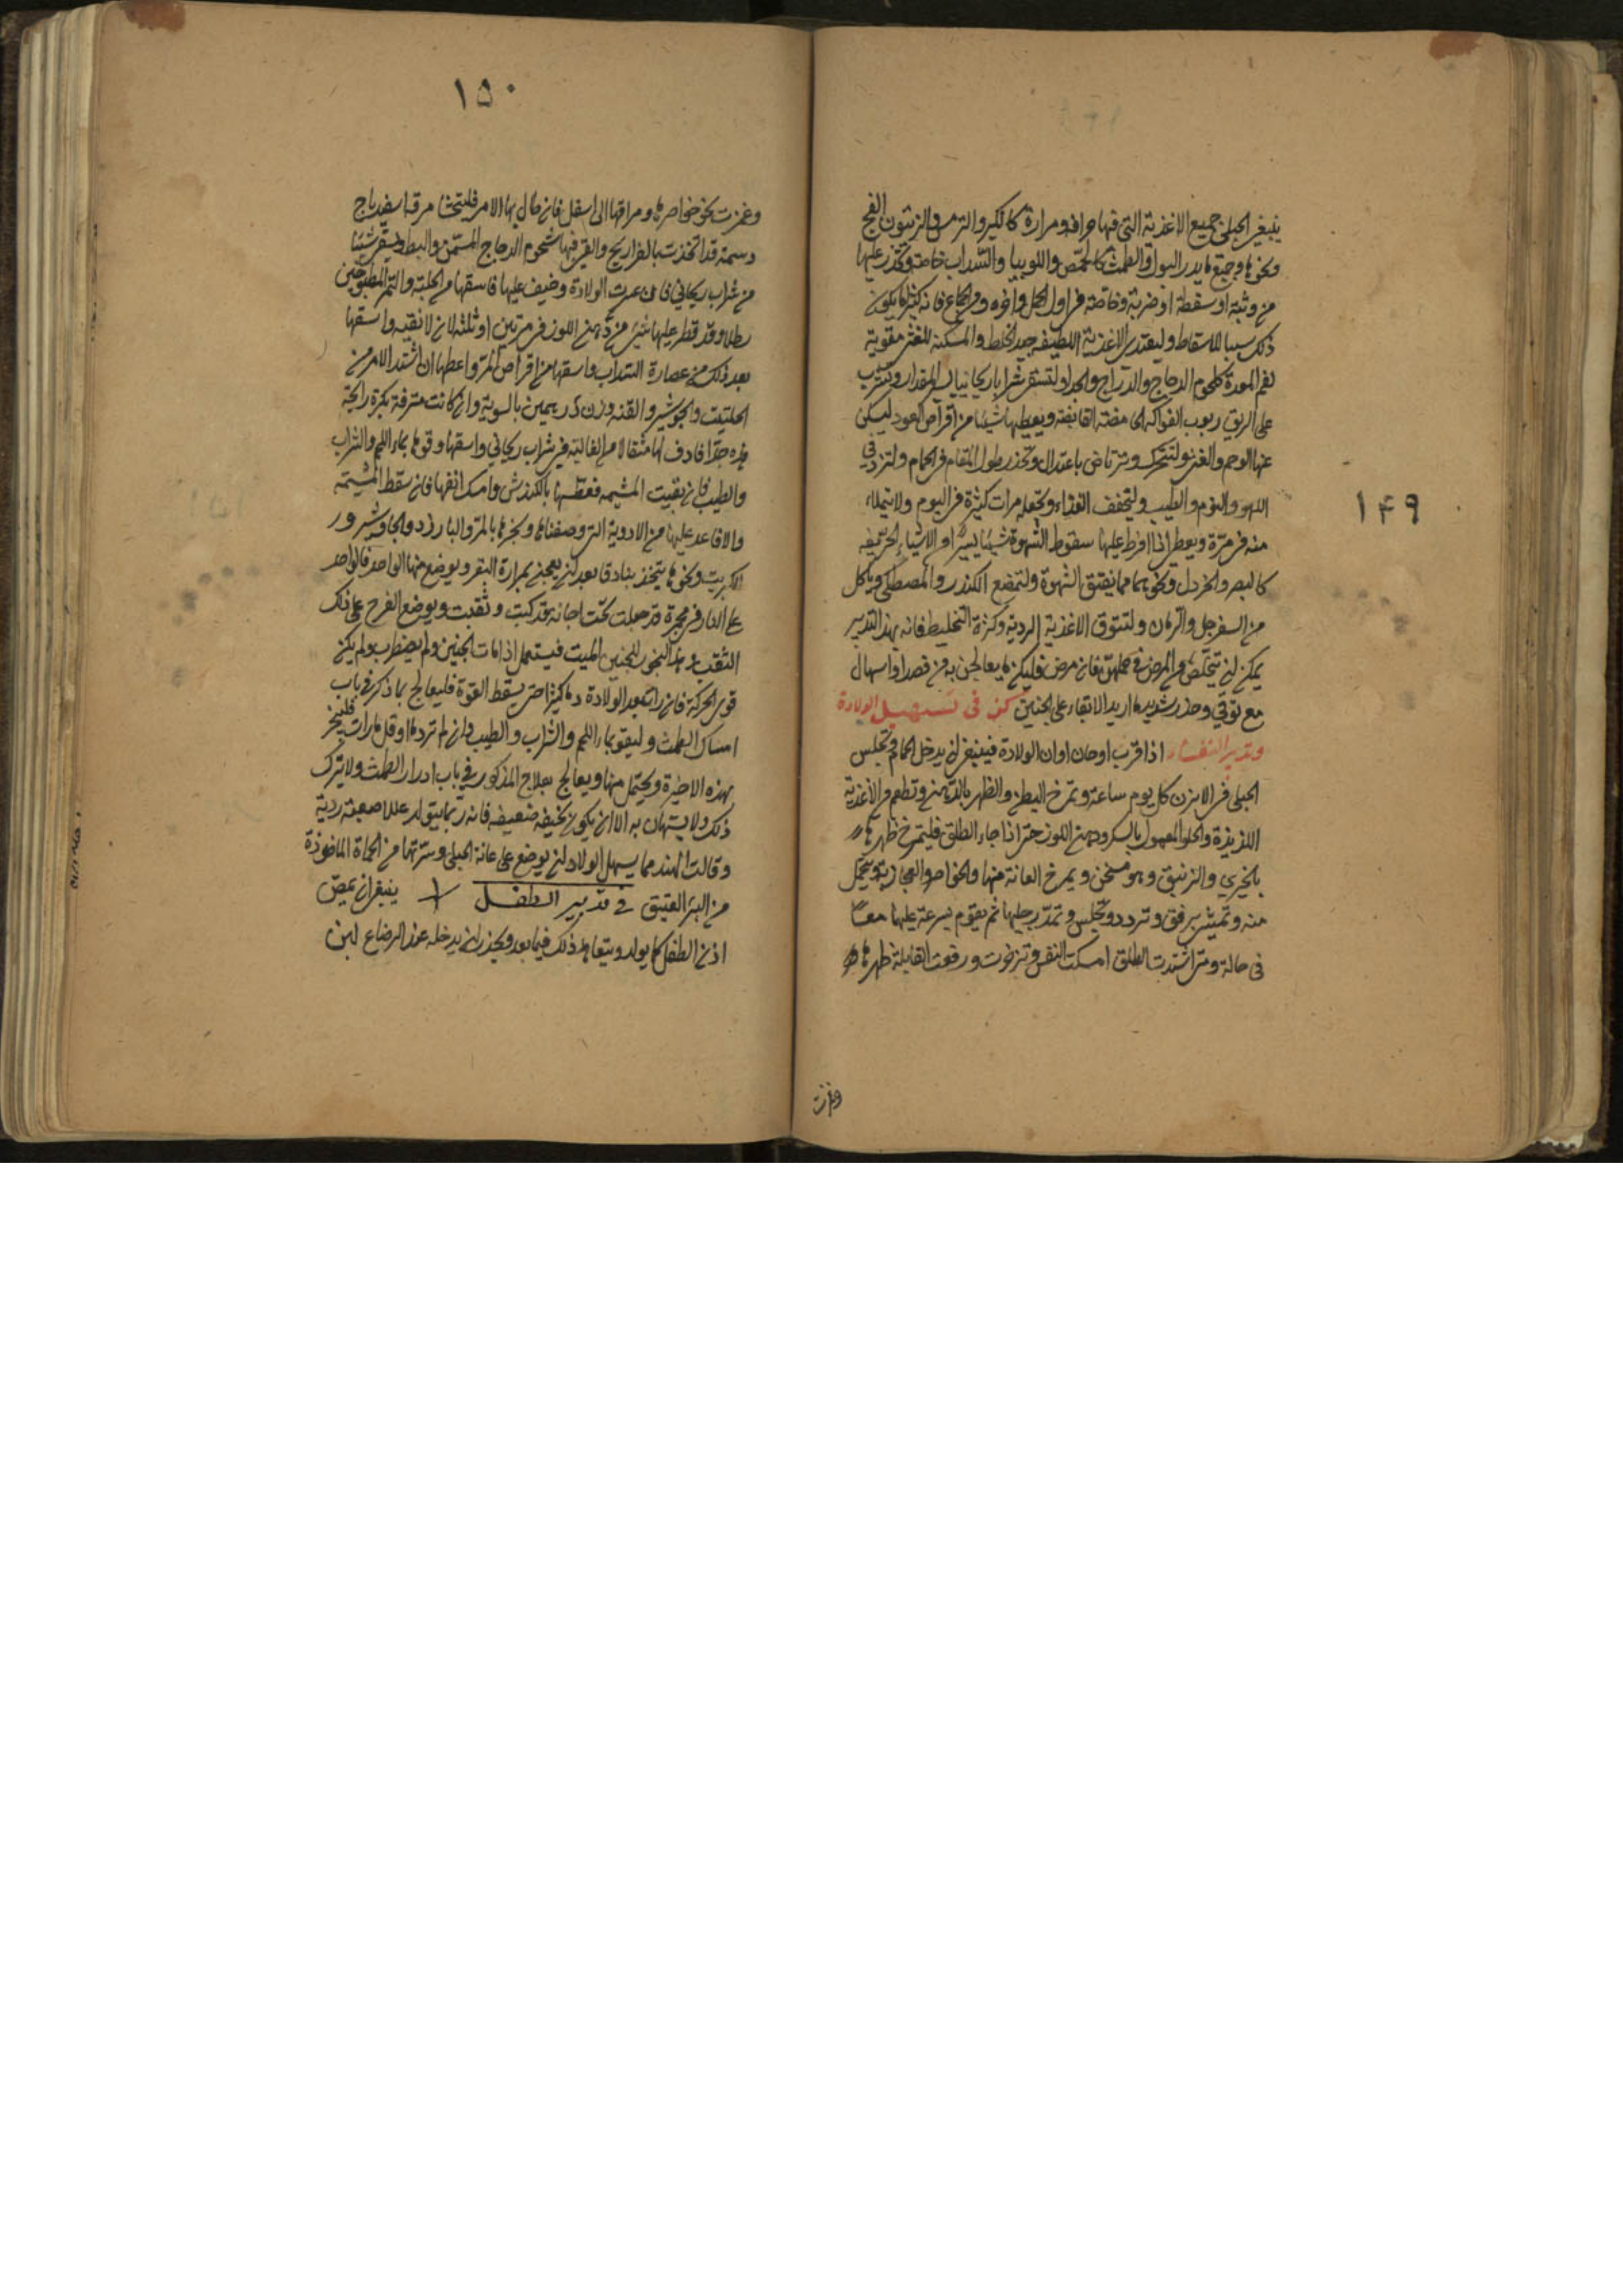 ١٤٩
ينبغي الحبلى جميع الاغذية التي فيها حرافة ومرارة كالكبر والترمس والزيتون الفج
ونحوها وجميع ما يدر البول والطمث كالحمص واللوبيا والسداب خاصة ويحذر عليها
من وثبة او سقطة او ضربة وخاصة في اول الحمل واخره ومن الجماع فانه كثيرا ما يكون
ذلك سببا للاسقاط وليغتذي الاغذية اللطيفة جيد الخلط والمسكنة للغثي مقوية
لفم المعدة كلحوم الدجاج والدراج والجداء ولتسقى شرابا ريحانيا المقدار وتشرب
على الريق ربوب الفواكه القابضة ويعطيها شيئا من اقراص العود ليسكن
عنها الوحم والغثي ولتتحرك وترتاض باعتدال وتحذر طول المقام في الحمام ولتزد في
اللهو والنوم والطيب وليخفف الغذاء وتجعله مرات كثيرة في اليوم ولا يتملاء
منه في مرة ويعطى اذا افرط عليها سقوط الشهوة شيئا يسيرا من الاشياء الحريفة
كالبصل والخردل ونحوهما مما يفتق الشهوة ولتمضغ الكندر والمصطكى ويأكل
من السفرجل والرمان ولتتوق الاغذية الردية وكثرة التخليط فانه بهذا التدبير
يمكن ان يتخلص من المرض في حملهن فان مرض فليكن ما يعالجن به من فصد او اسهال
مع توقي وحذر شديد ما اريد الابقاء على الجنين في تسهيل الولادة
وتدبير النفساء اذا قرب او حان اوان الولادة فينبغي ان يدخل الحمام وتجلس
الحبلى في الابزن كل يوم ساعة وتمرخ البطن والظهر بالدهن وتطعم من الاغذية
اللذيذة والحلو المعمول بالسكر ودهن اللوز حتى اذا جاء الطلق فليتمرخ ظهرها
بالخيري والزنبق وهو مسخن ويمرخ العانة منها والخواصر والعجز ويتحمل
منه وتمشي برفق وتردد وتجلس وتمد رجليها ثم يقوم بسرعة عليها معا
في حالة ومتى اشتدت الطلق امسكت النفس وتزحرت ورفعت القابلة ظهرها
وغمزت
١٥٠
وغمزت نحو خواصرها ومراقها الى اسفل فان طال بها الامر فليتحسا مرقة اسفيدباج
دسمة قد اتخذت بالفراريج والقي فيها شحوم الدجاج المسمن والبط ويسقى شيئا
من شراب ريحاني فان عسرت الولادة وضيف عليها فاسقها من الحلبة والتمر المطبوخين
رطلا وقد قطر عليها شيء من دهن اللوز في مرتين او ثلثة لان لا تقيه واسقها
بعد ذلك من عصارة السداب واسقها من اقراص المر واعطها ان اشتد الامر من
الحلتيت والجوشير والقنه وزن درهمين بالسوية وان كانت مترفة بكره رائحة
هذه جدا فادف لها مثقالا من الغالية في شراب ريحاني واسقها وقوها بماء اللحم والشراب
والطيب فان بقيت المشيمة فعطسها بالكندش وامسك انفها فان سقط المشيمة
والا فاعد عليها من الادوية التي وصفناها وبخرها بالمر والبارزد والجاوشير و
الكبريت ونحوها يتخذ بنادقا بعد ان يعجن بمرارة البقر ويوضع منها الواحد فالواحد
على النار في مجمرة قد جعلت تحت اجانة قد كبت وثقبت ويوضع الفرج على ذلك
الثقب وهذا البخور للجنين الميت فيستعمل اذا مات الجنين ولم يضطرب ولم يكن
قوي الحركة فان رات بعد الولادة دما كثيرا حتى يسقط القوة فليعالج بما ذكر في باب
امساك الطمث وليقو بماء اللحم والشراب والطيب وان لم ترد ما او قل ما رات فليبخر
بهذه الاخيرة ويحتمل منها ويعالج بعلاج المذكور في باب ادرار الطمث ولا يترك
ذلك ولا يستهان به الا ان يكون نحيفة ضعيفة فانه ربما يتولد عللا صعبة ردية
وقالت الهند مما يسهل الولاد ان يوضع على عانة الحبلى وسرتها من الحماة الماخوذة
من البئر العتيق في تدبير الطفل ينبغي ان يمص
اذن الطفل كما يولد ويتعاهد ذلك فيما بعد ويحذر ان يدخله عند الرضاع لبن